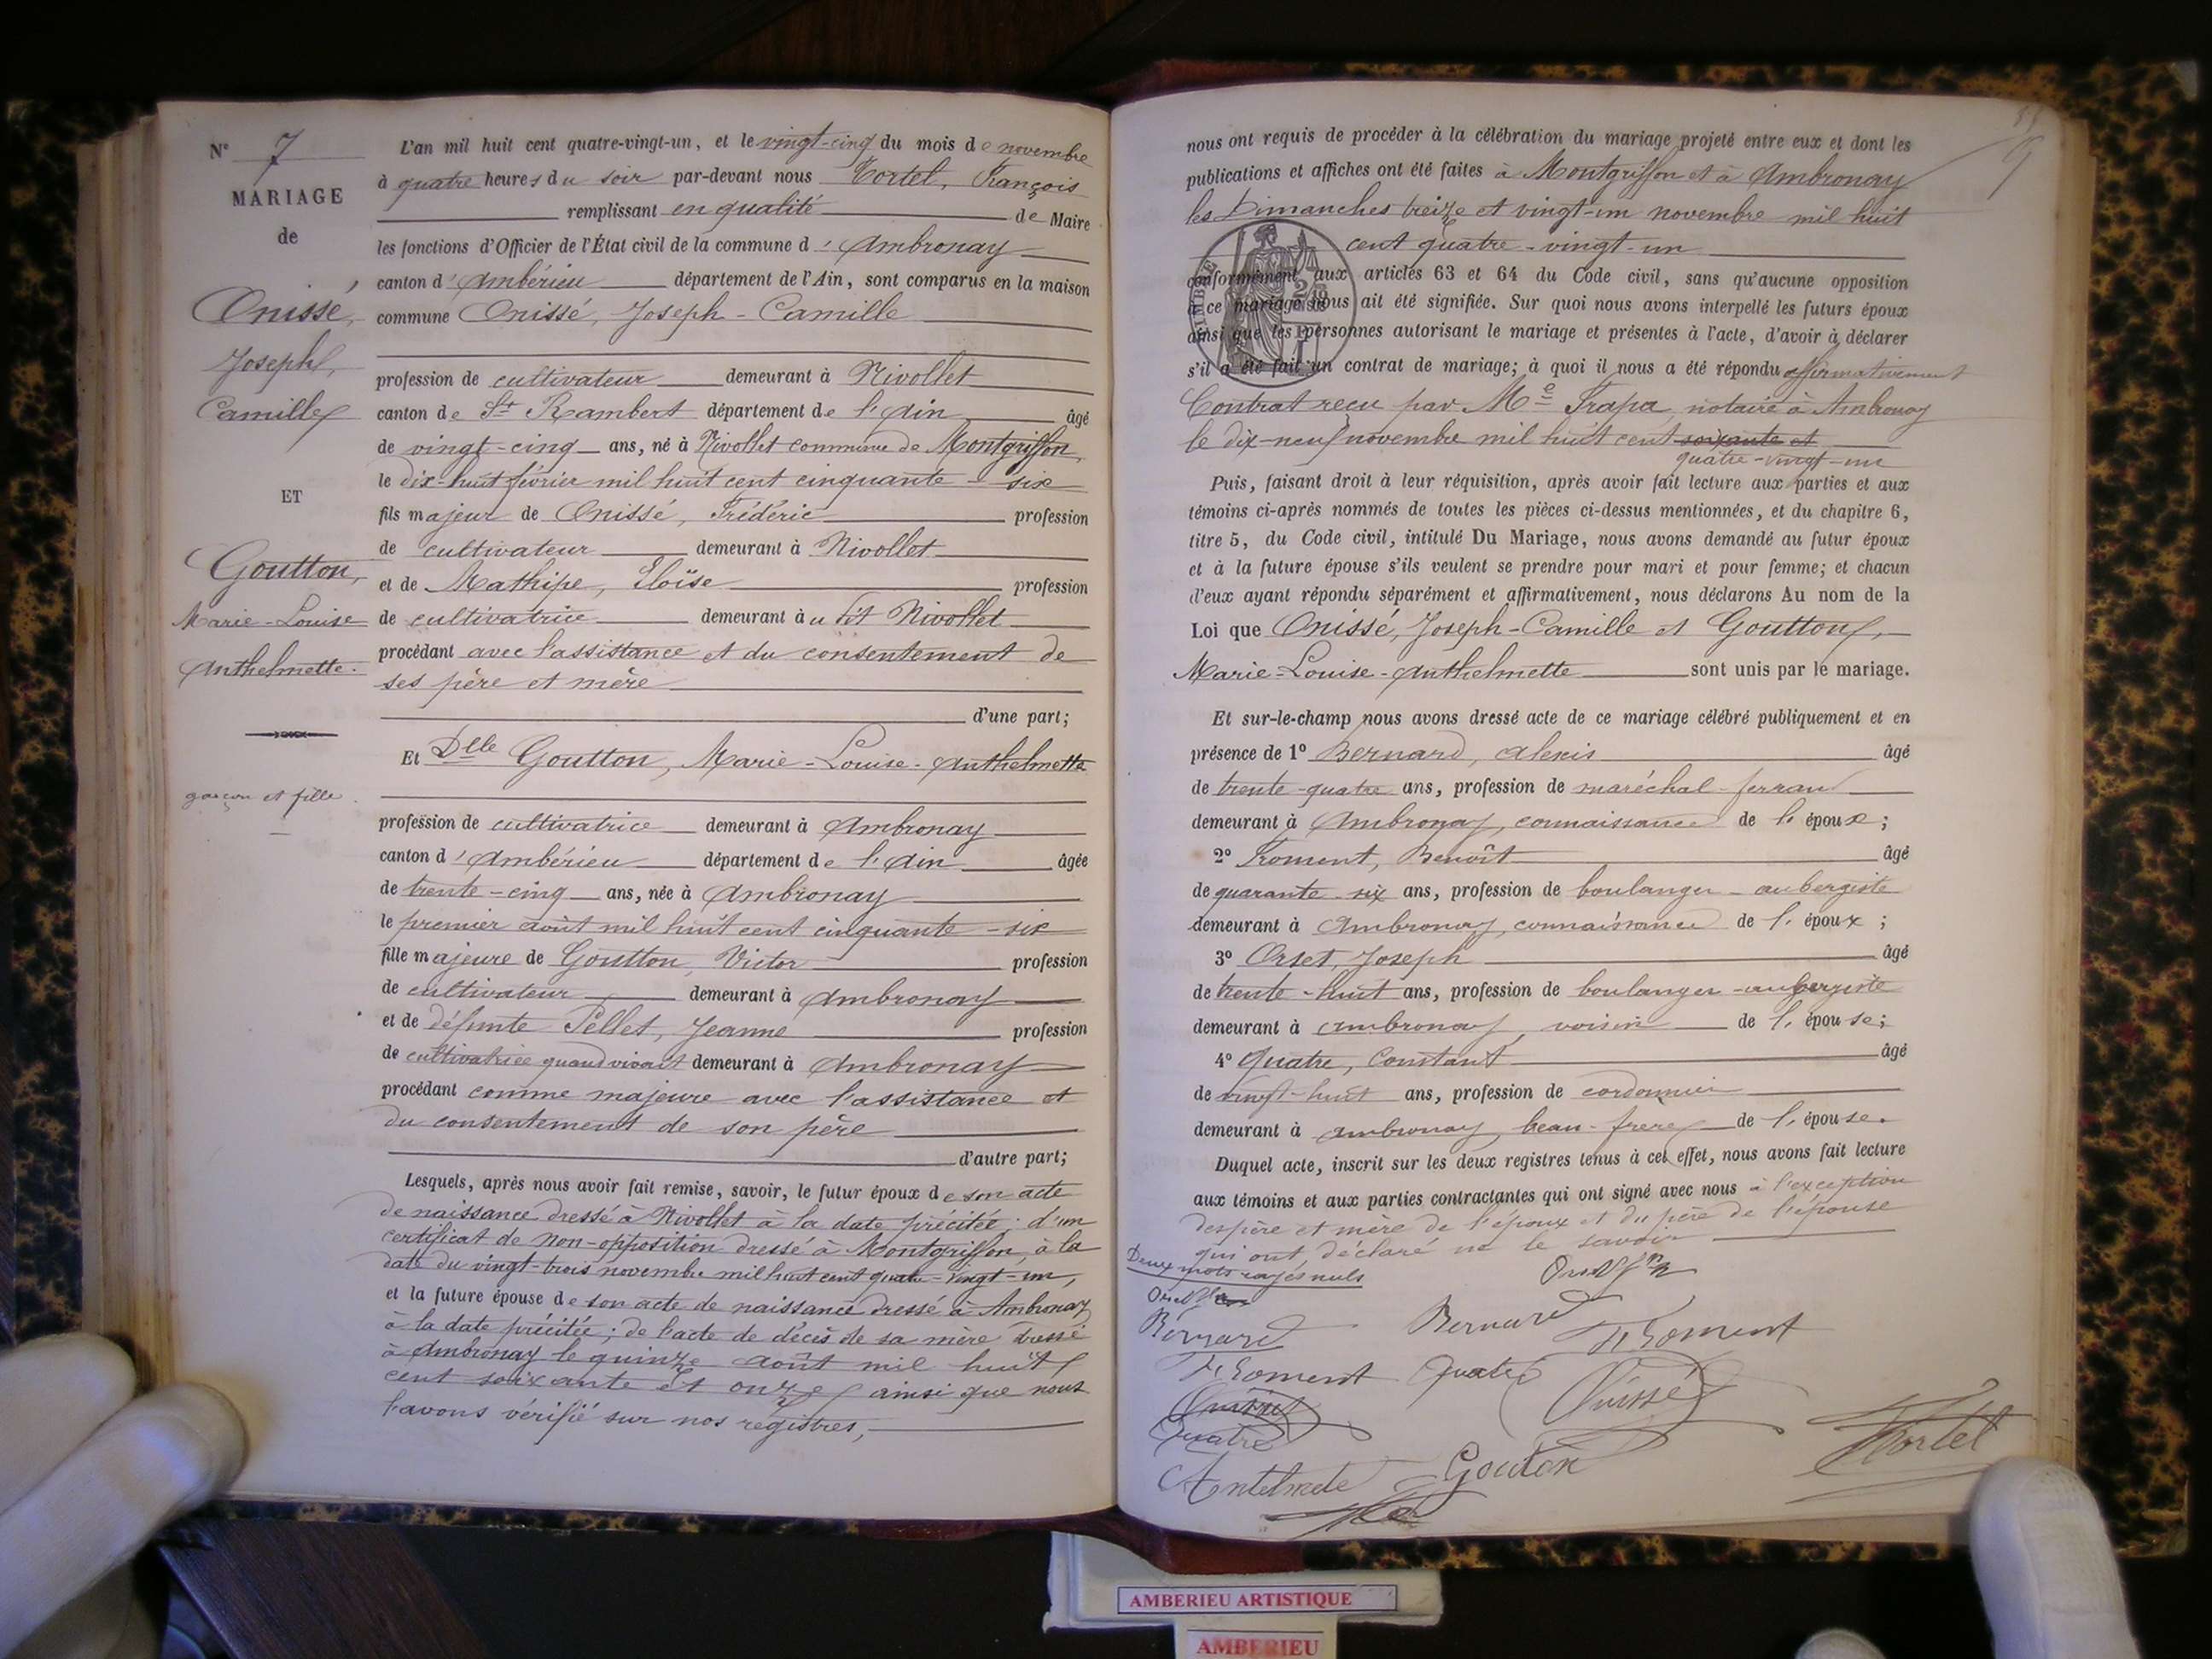 N° 7
MARIAGE
de
Onissé,
Joseph,
Camille
ET
Goutton,
Marie-Louise
Anthelmette.
garçon et fille.
L'an mil huit cent quatre-vingt-un, et le vingt-cinq du mois de novembre
à quatre heures du soir par-devant nous Tortel, François
remplissant en qualité de Maire
les fonctions d'Officier de l'État civil de la commune d'Ambronay
canton d'Ambérieu département de l'Ain, sont comparus en la maison
commune Onissé, Joseph-Camille
profession de cultivateur demeurant à Nivollet
canton de St Rambert département de l'Ain âgé
de vingt-cinq ans, né à Nivollet commune de Montgriffon,
le dix-huit février mil huit cent cinquante-six
fils majeur de Onissé, Frédéric profession
de cultivateur demeurant à Nivollet
et de Mathipe, Eloïse profession
de cultivatrice demeurant au dit Nivollet
procédant avec l'assistance et du consentement de
ses père et mère
d'une part;
Et Dlle Goutton, Marie-Louise-Anthelmette
profession de cultivatrice demeurant à Ambronay
canton d'Ambérieu département de l'Ain âgée
de trente-cinq ans, née à Ambronay
le premier août mil huit cent cinquante-six
fille majeure de Goutton Victor profession
de cultivateur demeurant à Ambronay
et de défunte Pellet, Jeanne profession
de cultivatrice quand vivait demeurant à Ambronay
procédant comme majeure avec l'assistance et
du consentement de son père
d'autre part;
Lesquels, après nous avoir fait remise, savoir, le futur époux de son acte
de naissance dressé à Nivollet à la date précitée; d'un
certificat de non-opposition dressé à Montgriffon, à la
date du vingt-trois novembre mil huit cent quatre-vingt-un,
et la future épouse de son acte de naissance dressé à Ambronay
à la date précitée; de l'acte de décès de sa mère dressé
à Ambronay le quinze août mil huit
cent soixante et onze ainsi que nous
l'avons vérifié sur nos registres,
nous ont requis de procéder à la célébration du mariage projeté entre eux et dont les
publications et affiches ont été faites à Montgriffon et à Ambronay
les Dimanches treize et vingt-un novembre mil huit
cent quatre-vingt-un
conformément aux articles 63 et 64 du Code civil, sans qu'aucune opposition
à ce mariage nous ait été signifiée. Sur quoi nous avons interpellé les futurs époux
ainsi que les personnes autorisant le mariage et présentes à l'acte, d'avoir à déclarer
s'il a été fait un contrat de mariage; à quoi il nous a été répondu affirmativement
Contrat reçu par Me Trapa, notaire à Ambronay
le dix-neuf novembre mil huit cent soixante et
quatre-vingt-un
Puis, faisant droit à leur réquisition, après avoir fait lecture aux parties et aux
témoins ci-après nommés de toutes les pièces ci-dessus mentionnées, et du chapitre 6,
titre 5, du Code civil, intitulé Du Mariage, nous avons demandé au futur époux
et à la future épouse s'ils veulent se prendre pour mari et pour femme; et chacun
d'eux ayant répondu séparément et affirmativement, nous déclarons Au nom de la
Loi que Onissé, Joseph-Camille et Goutton,
Marie-Louise-Anthelmette sont unis par le mariage.
Et sur-le-champ nous avons dressé acte de ce mariage célébré publiquement et en
présence de 1° Bernard, Alexis âgé
de trente-quatre ans, profession de maréchal-ferrant
demeurant à Ambronay, connaissance de l'époux;
2° Froment, Benoît âgé
de quarante-six ans, profession de boulanger-aubergiste
demeurant à Ambronay, connaissance de l'époux;
3° Orset, Joseph âgé
de trente-huit ans, profession de boulanger-aubergiste
demeurant à Ambronay, voisin de l'épouse;
4° Quatre, Constant âgé
de vingt-huit ans, profession de cordonnier
demeurant à Ambronay, beau-frère de l'épouse.
Duquel acte, inscrit sur les deux registres tenus à cet effet, nous avons fait lecture
aux témoins et aux parties contractantes qui ont signé avec nous à l'exception
des père et mère de l'époux et du père de l'épouse
qui ont déclaré ne le savoir
Deux mots rayés nuls
Bernard Bernard Froment
Froment Quatre Onissé
Onissé
Quatre
Antelmete Gouton Tortel
AMBERIEU ARTISTIQUE
AMBERIEU